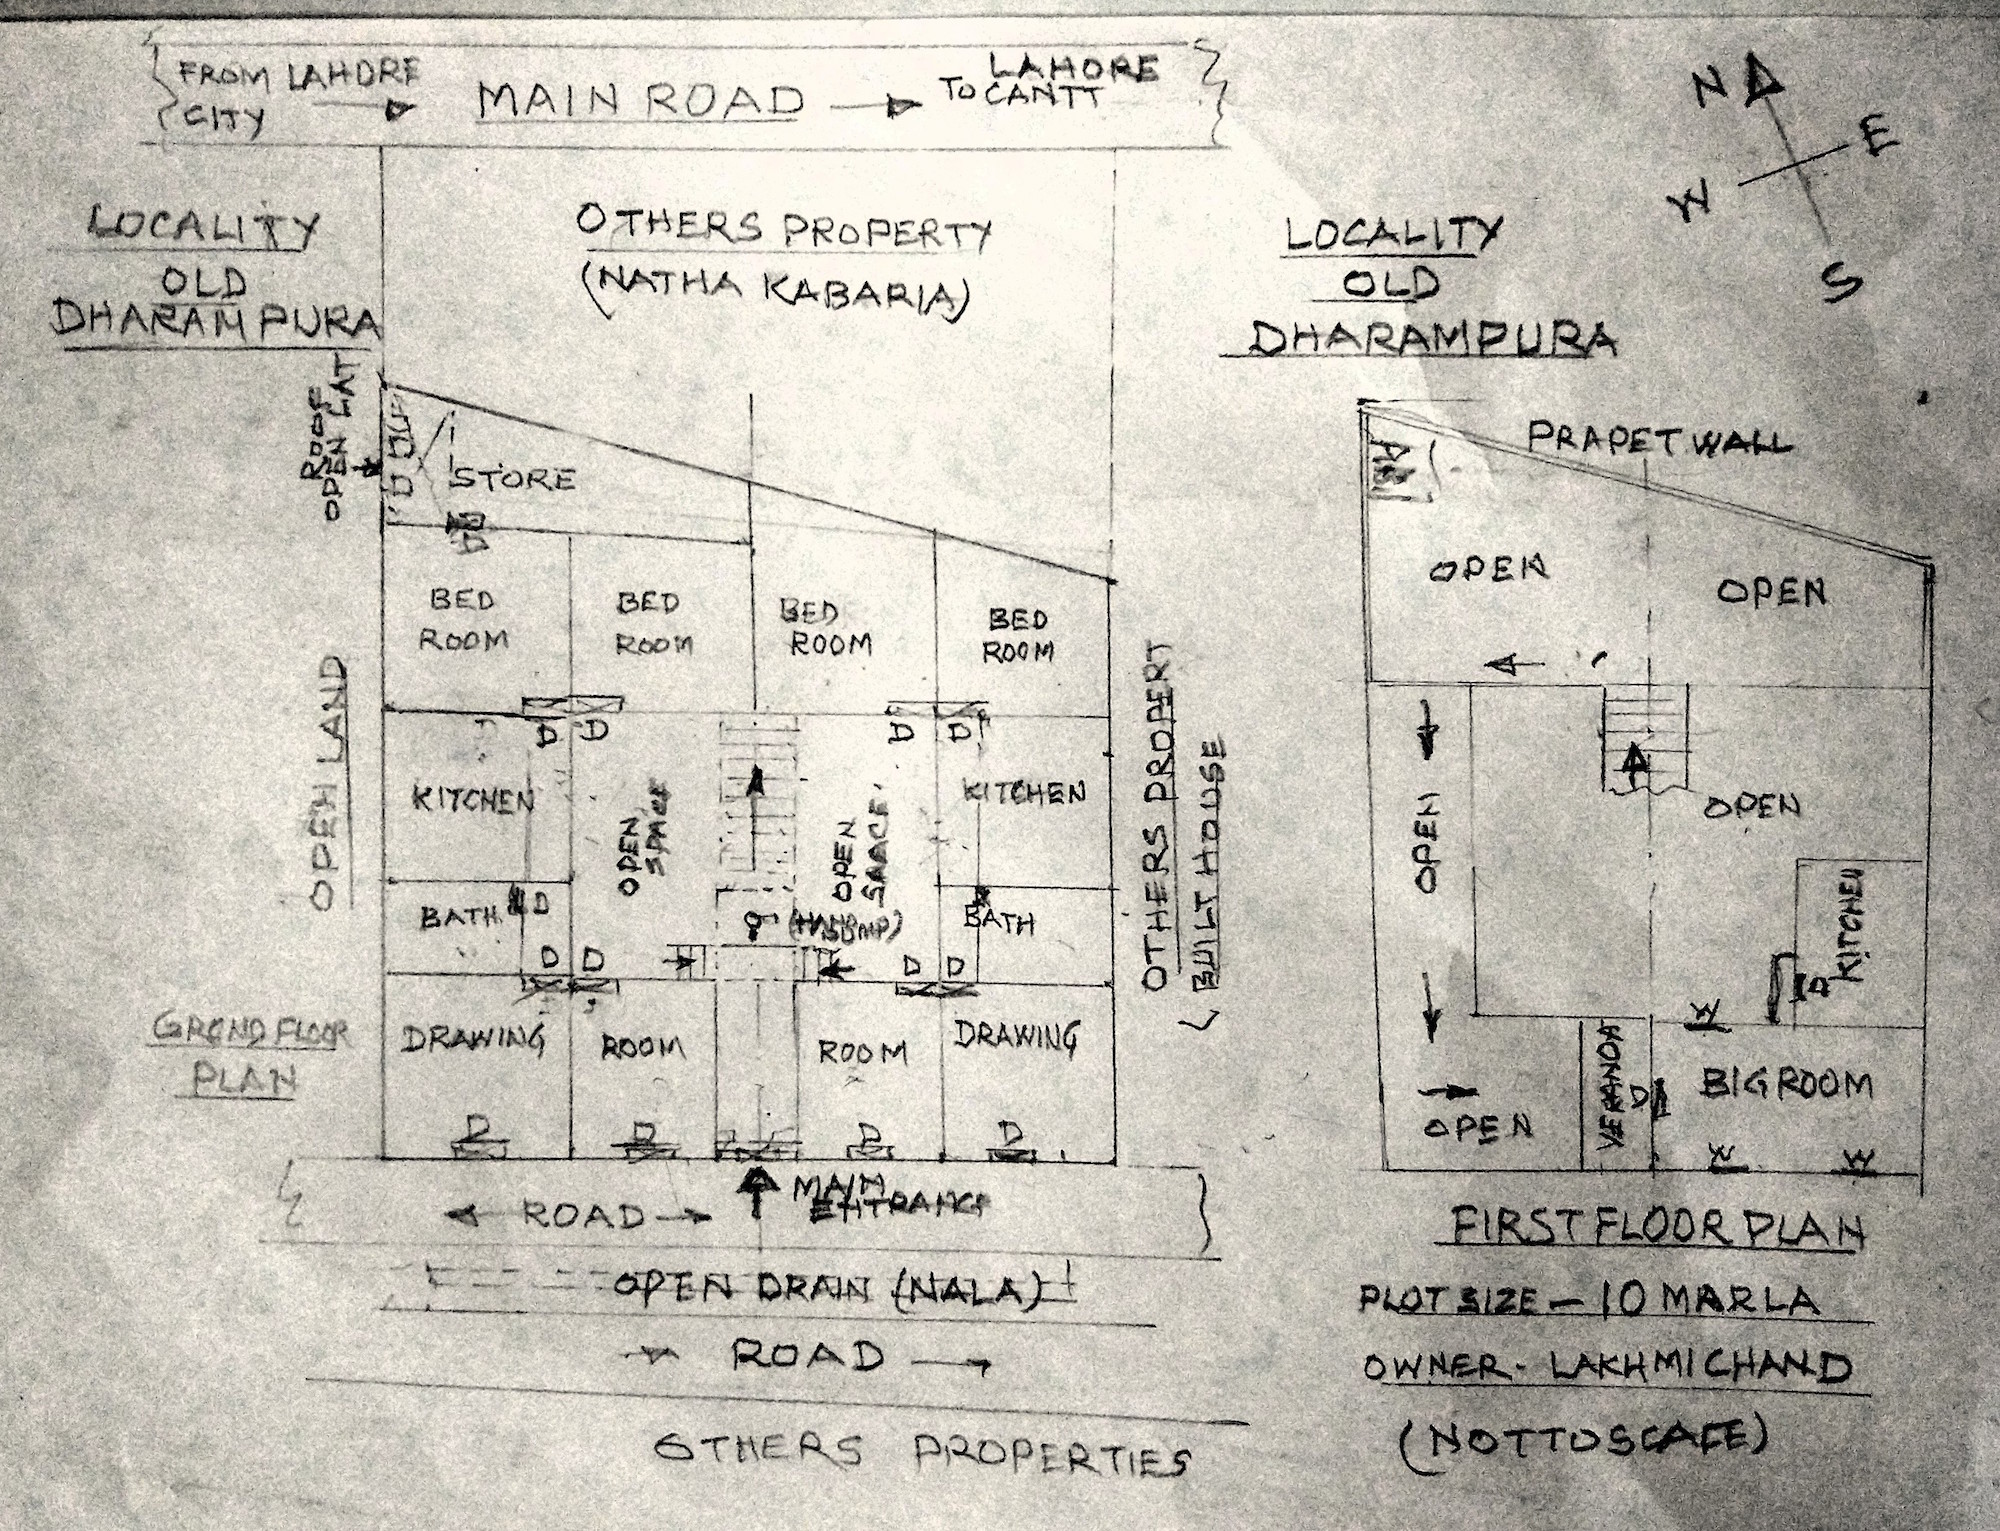 FROM LAHORE
CITY
MAIN ROAD
LAHORE
TO CANTT
N
E
W
S
LOCALITY
OLD
DHARAMPURA
OTHERS PROPERTY
(NATHA KABARIA)
LOCALITY
OLD
DHARAMPURA
ROOF
OPEN LAT
STORE
D
BED
ROOM
BED
ROOM
BED
ROOM
BED
ROOM
D
D
D
D
OPEN LAND
KITCHEN
OPEN
SPACE
OPEN
SAACE
KITCHEN
OTHERS PROPERT
BUILT HOUSE
BATH
D
(HAND
PUMP)
BATH
D
D
D
D
GROND FLOOR
PLAN
DRAWING
ROOM
ROOM
DRAWING
D
D
D
D
MAIN
ENTRANCE
ROAD
OPEN DRAIN (NALA)
ROAD
OTHERS PROPERTIES
PRAPET WALL
OPEN
OPEN
OPEN
OPEN
KITCHEN
D
W
VERANDA
D
BIG ROOM
OPEN
W
W
FIRST FLOOR PLAN
PLOT SIZE - 10 MARLA
OWNER - LAKHMICHAND
(NOT TO SCAFE)